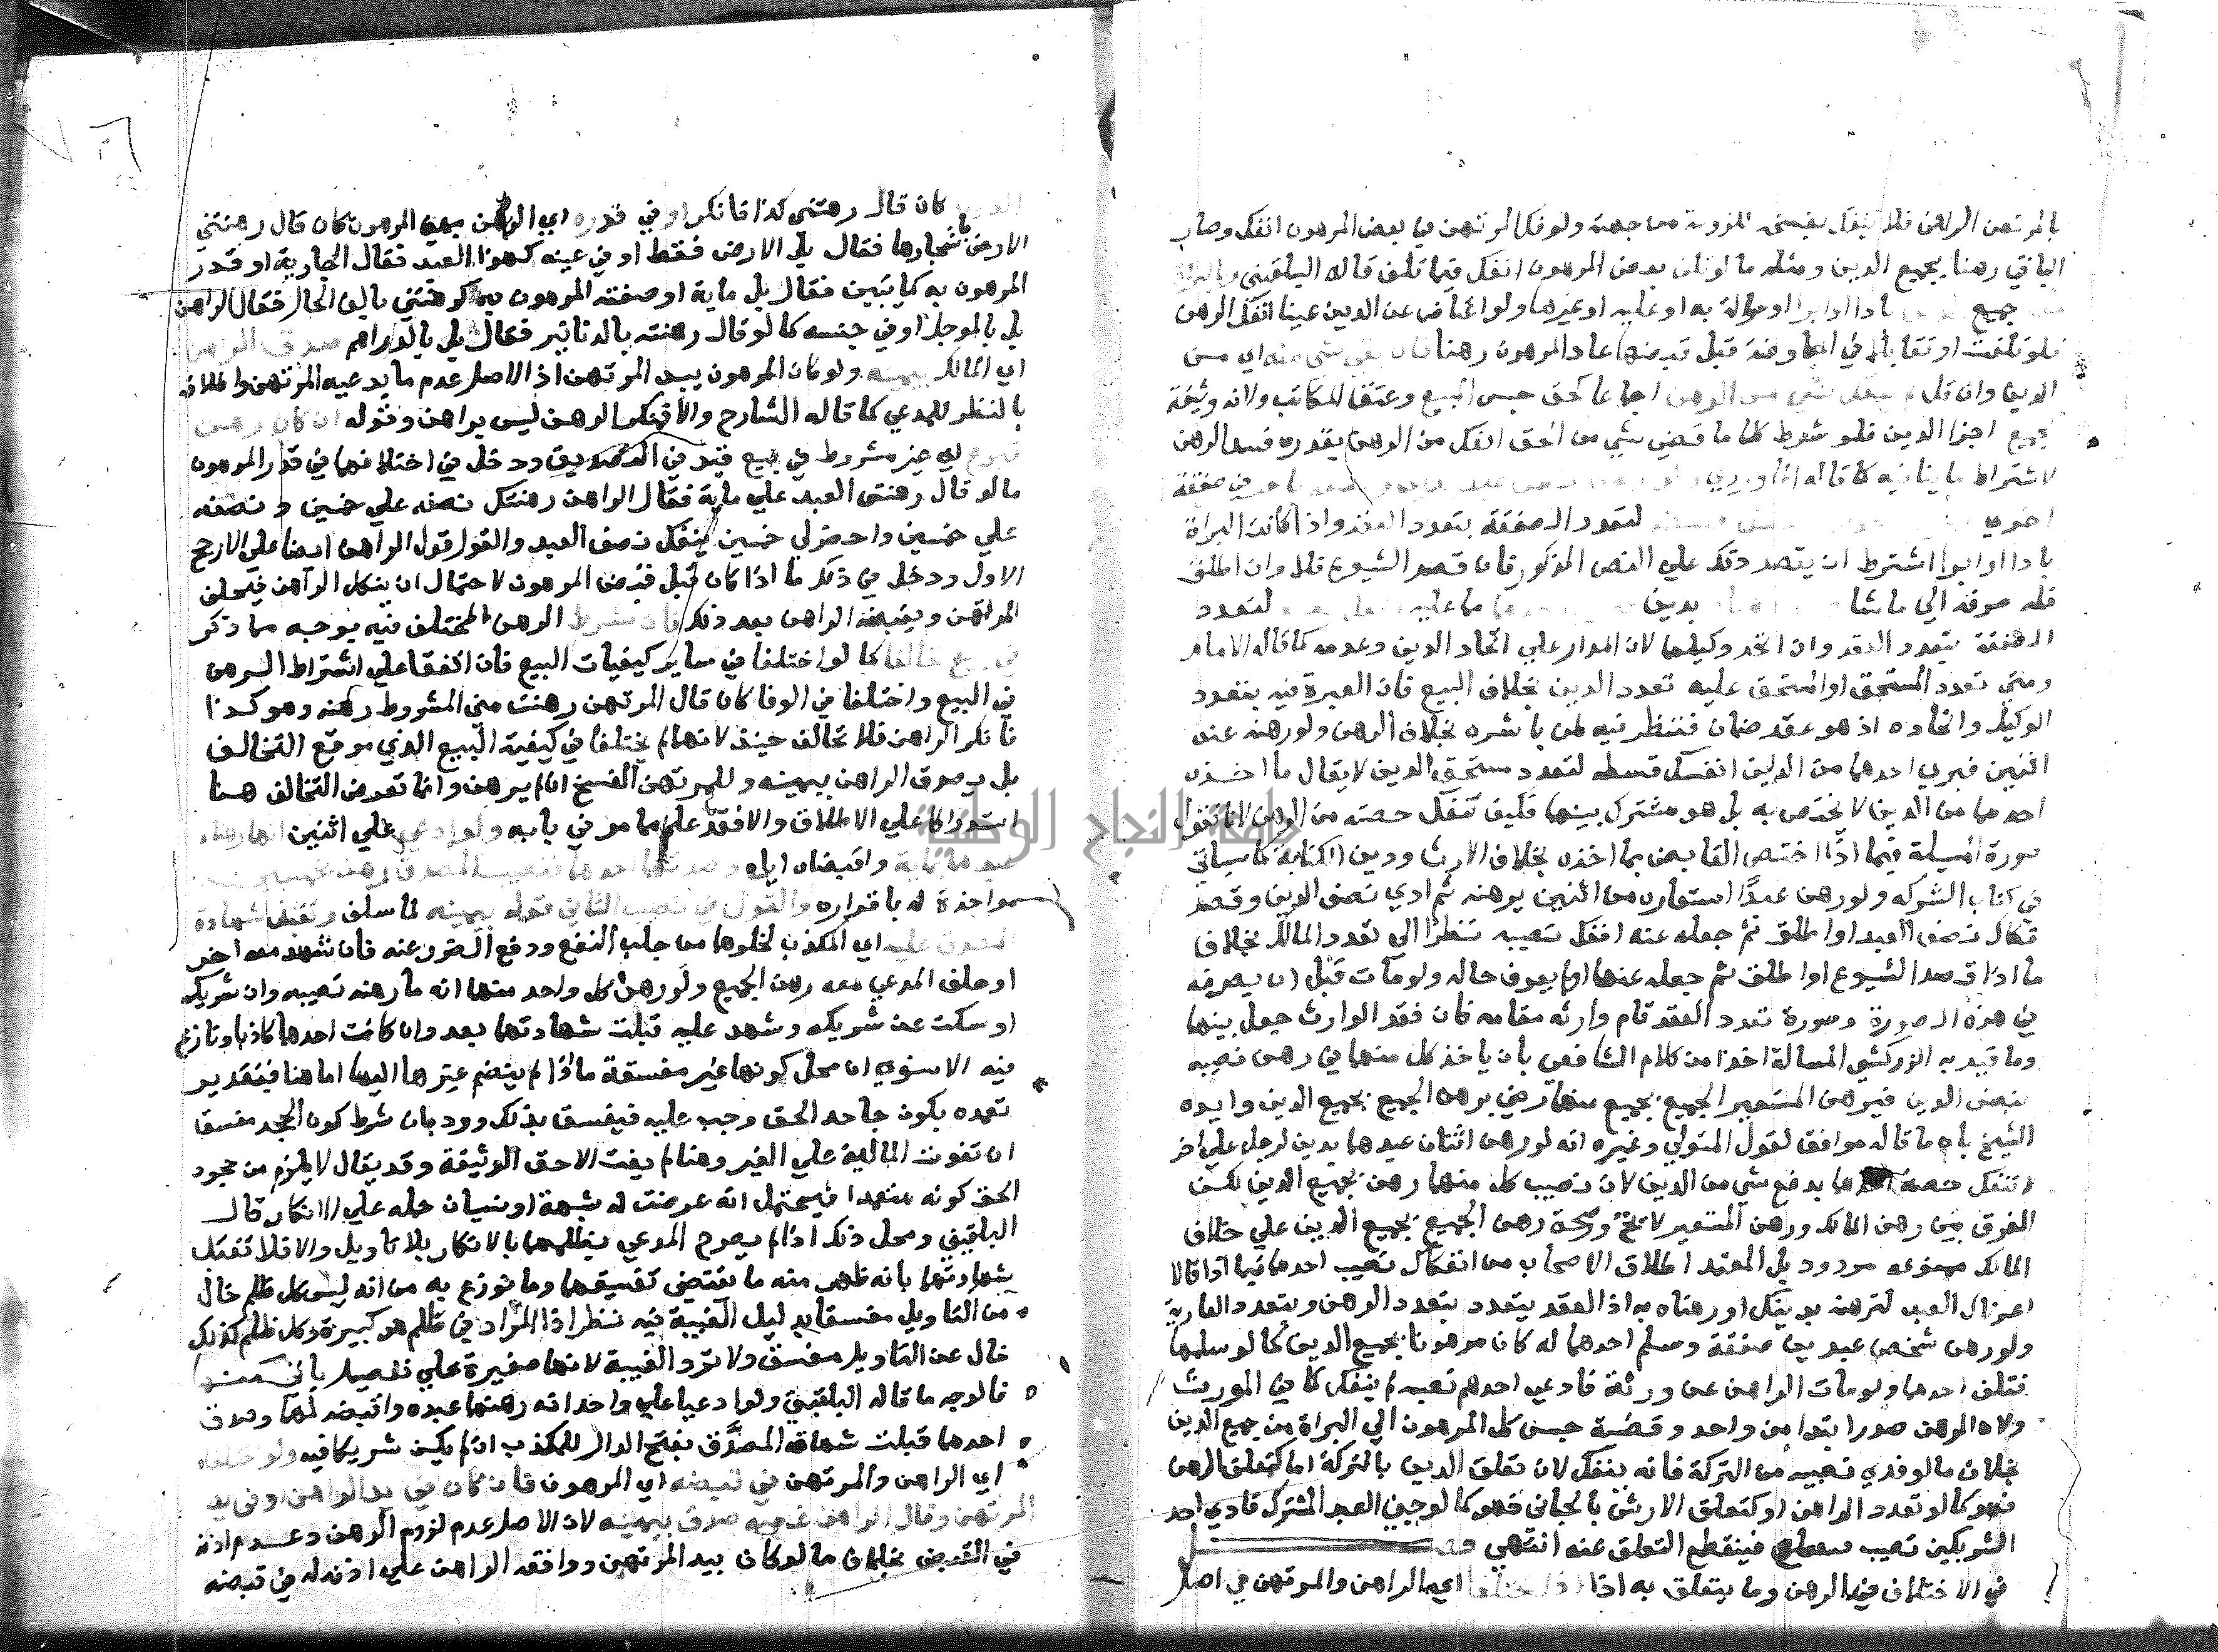 بالمرتهن الراهن فلا ينفك بفسخه للزومه من جهته ولو فك المرتهن في بعض المرهون انفك وصار
الباقي رهنا بجميع الدين ومثله ما لو تلف بعض المرهون انفك فيما تلف قاله البلقيني
جميع باداء او ابرا او حوالة به او عليه او غيرها ولو اعتاض عن الدين عينا انفك الرهن
فلو تلفت او تقايلا في المعاوضة قبل قبضها عاد المرهون رهنا فان بقي شي منه اي من
الدين وان قل لم ينفك شي من الرهن اجماعا كحق حبس المبيع وعتق المكاتب ولانه وثيقة
بجميع اجزا الدين فلو شرط كلما قضي شي من الحق انفك من الرهن بقدره فسد الرهن
لاشتراط ما ينافيه كما قاله الماوردي في صفقة
اخري لتعدد الصفقة بتعدد العقد واذا كانت البراة
بادا او ابرا اشترط ان يقصد ذلك علي النص المذكور فان قصد الشيوع فلا وان اطلق
فله صرفه الي ما شا بدين ما عليه لتعدد
الصفقة بتعدد العقد وان اتحد وكيلهما لان المدار علي اتحاد الدين وعدمه كما قاله الامام
ومتي تعدد المستحق او المستحق عليه تعدد الدين بخلاف البيع فان العبرة فيه بتعدد
الوكيل واتحاده اذ هو عقد ضمان فننظر فيه لمن باشره بخلاف الرهن ولو رهنه عند
اثنين فبري احدهما من الدين انفك قسطه لتعدد مستحق الدين لا يقال ما اخذه
احدهما من الدين لا يختص به بل هو مشترك بينهما فكيف تنفك حصته من الرهن لانا نقول
صورة المسيلة فيما اذا اختص القابض بما اخذه بخلاف الارث ودين الكتابة كما سياتي
في كتاب الشركه ولو رهن عبدا استعاره من اثنين يرهنه ثم ادي نصف الدين وقصد
فكاك نصف العبد او اطلق ثم جعله عنه انفك نصيبه نظرا الي تعدد المالك بخلاف
ما اذا قصد الشيوع او اطلق ثم جعله عنهما او لم يعرف حاله ولو مات قبل ان يصرفه
في هذه الصورة وصورة تعدد العقد قام وارثه مقامه فان فقد الوارث جعل بينهما
وما قيد به الزركشي المسالة اخذا من كلام الشافعي بان ياخذ كل منهما في رهن نصيبه
بنصف الدين فيرهن المستعير الجميع بجميع يرهن الجميع بجميع الدين وايده
الشيخ بان ما قاله موافق لقول المتولي وغيره انه لو رهن اثنان عبدهما بدين لرجل علي اخر
لم تنفك حصة احدهما بدفع شي من الدين لان نصيب كل منهما رهن بجميع الدين لكن
الفرق بين رهن المالك ورهن المستعير لايح وصحة رهن الجميع بجميع الدين علي خلاف
المالك ممنوعه مردود بل المعتمد اطلاق الاصحاب من انفكاك نصيب احدهما فيما اذا قالا
اعرناك العبد لترهنه بدينك او رهناه به اذ العقد يتعدد بتعدد الرهن وبتعدد العارية
ولو رهن شخص عبدين صفقة وسلم احدهما له كان مرهونا بجميع الدين كما لو سلمهما
فتلف احدهما ولو مات الراهن عن ورثة فادي احدهم نصيبه لم ينفك كما في الموروث
ولان الرهن صدر ابتدا من واحد وقضية حبس كل المرهون الي البراة من جميع الدين
بخلاف ما لو فدي نصيبه من التركة فانه ينفك لان تعلق الدين بالتركة اما كتعلق الرهن
فهو كما لو تعدد الراهن او كتعلق الارش بالجاني فهو كما لو جني العبد المشترك فادي احد
الشريكين نصيبه فينقطع التعلق عنه انتهي فصل
في الاختلاف في الرهن وما يتعلق به اذا اختلفا اي الراهن والمرتهن في اصل
كان قال رهنتني كذا فانكر او في قدره اي الرهن بمعني المرهون كان قال رهنتني
الارض باشجارها فقال بل الارض فقط او في عينه كهذا العبد فقال الجارية او قدر
المرهون به كمايتين فقال بل ماية او صفته المرهون به كرهنتني بالف الحال فقال الراهن
بل بالموجل او في جنسه كما لو قال رهنته بالدنانير فقال بل بالدراهم صدق الراهن
اي المالك بيمينه ولو كان المرهون بيد المرتهن اذ الاصل عدم ما يدعيه المرتهن واطلاقه
بالنظر للمدعي كما قاله الشارح والا فمنكر الرهن ليس براهن وقوله ان كان رهن
تبرع اي غير مشروط في بيع قيد في التصديق ودخل في اختلافهما في قدر المرهون
ما لو قال رهنتني العبد علي ماية فقال الراهن رهنتك نصفه علي خمسين ونصفه
علي خمسين واحضر لي خمسين لينفك نصف العبد والقول قول الراهن ايضا علي الارجح
الاول ودخل في ذلك ما اذا كان قبل قبض المرهون لاحتمال ان ينكل الراهن فيحلف
المرتهن ويقبضه الراهن بعد ذلك فان شرط الرهن المختلف فيه بوجه مما ذكر
في بيع تحالفا كما لو اختلفا في ساير كيفيات البيع فان اتفقا علي اشتراط الرهن
في البيع واختلفا في الوفا كان قال المرتهن رهنت مني المشروط رهنه وهو كذا
فانكر الراهن فلا تحالف حينيذ لانهما لم يختلفا في كيفية البيع الذي موقع التحالف
بل يصدق الراهن بيمينه وللمرتهن الفسخ ان لم يرهن وانما تعرض التحالف هنا
استدراكا علي الاطلاق والا فقد علم مما مر في بابه ولو ادعي علي اثنين انهما رهناه
عبدهما بماية واقبضاه اياه وصدقه احدهما فنصيب المصدق رهن بخمسين
مواخذة له باقراره والقول في نصيب الثاني قوله بيمينه لما سلف وتقبل شهادة
المصدق عليه اي المكذب لخلوها من جلب النفع ودفع الضرر عنه فان شهد معه اخر
او حلف المدعي معه رهن الجميع ولو رهن كل واحد منهما انه ما رهنه نصيبه وان شريكه
او سكت عن شريكه وشهد عليه قبلت شهادتهما بعد وان كانت احدهما كاذبا ونازع
فيه الاسنوي ان محل كونها غير مفسقة ما اذا لم ينضم غيرها اليها اما هنا فبتقدير
تعمده يكون جاحد الحق وجب عليه فيفسق بذلك ورد بان شرط كون الجحد مفسقا
ان تفوت المالية علي الغير وهنا لم يفت الا حق الوثيقة وقد يقال لا يلزم من جحود
الحق كونه متعمدا فيحتمل انه عرضت له شبهة او نسيان حمله علي الانكار قال
البلقيني ومحل ذلك اذا لم يصرح المدعي بظلمهما بالانكار بلا تاويل والا فلا تقبل
شهادتهما بانه ظهر منه ما يقتضي تفسيقهما وما نوزع به من انه ليس كل ظلم خال
من التاويل مفسقا بدليل الغيبة فيه نظر اذ المراد في ظلم هو كبيرة وكل ظلم كذلك
خال عن التاويل مفسق ولا ترد الغيبة لانها صغيرة علي تفصيل ياتي
فالوجه ما قاله البلقيني ولو ادعيا علي واحد انه رهنهما عبده واقبضه لهما وصدق
احدهما قبلت شهادة المصدَّق بفتح الدال للمكذب ان لم يكن شريكا فيه ولو اختلفا
اي الراهن والمرتهن في قبضه اي المرهون فان كان في يد الراهن او في يد
المرتهن وقال الراهن غصبته صدق بيمينه لان الاصل عدم لزوم الرهن وعدم اذنه
في القبض بخلاف ما لو كان بيد المرتهن ووافقه الراهن علي اذنه له في قبضه